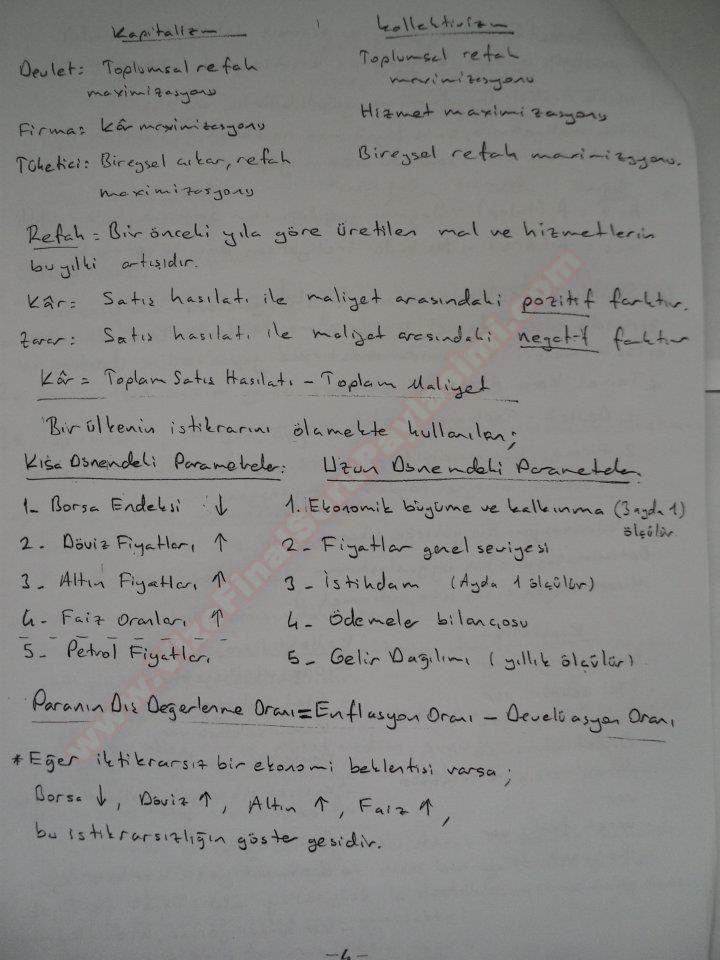 Kapitalizm
Devlet: Toplumsal refah
maximizasyonu
Firma: Kâr maximizasyonu
Tüketici: Bireysel çıkar, refah
maximizasyonu
Kollektivizm
Toplumsal refah
maximizasyonu
Hizmet maximizasyonu
Bireysel refah maximizasyonu.
Refah = Bir önceki yıla göre üretilen mal ve hizmetlerin
bu yılki artışıdır.
Kâr = Satış hasılatı ile maliyet arasındaki pozitif farktır.
Zarar: Satış hasılatı ile maliyet arasındaki negatif farktır
Kâr = Toplam Satış Hasılatı - Toplam Maliyet
Bir ülkenin istikrarını ölçmekte kullanılan;
Kısa Dönemdeki Parametreler:
1- Borsa Endeksi ↓
2- Döviz Fiyatları ↑
3- Altın Fiyatları ↑
4- Faiz Oranları ↑
5- Petrol Fiyatları
Uzun Dönemdeki Parametreler
1. Ekonomik büyüme ve kalkınma (3 ayda 1)
ölçülür
2- Fiyatlar genel seviyesi
3- İstihdam (Ayda 1 ölçülür)
4- Ödemeler bilançosu
5- Gelir Dağılımı (yıllık ölçülür)
Paranın Dış Değerlenme Oranı = Enflasyon Oranı - Develüasyon Oranı
* Eğer iktikrarsız bir ekonomi beklentisi varsa;
Borsa ↓, Döviz ↑, Altın ↑, Faiz ↑,
bu istikrarsızlığın göstergesidir.
-4-